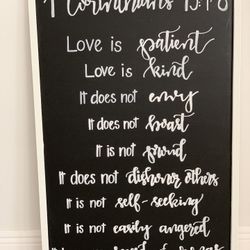 1 Corinthians
Love is patient
Love is kind
It does not envy
It does not boast
It is not proud
It does not dishonor others
It is not self-seeking
It is not easily angered